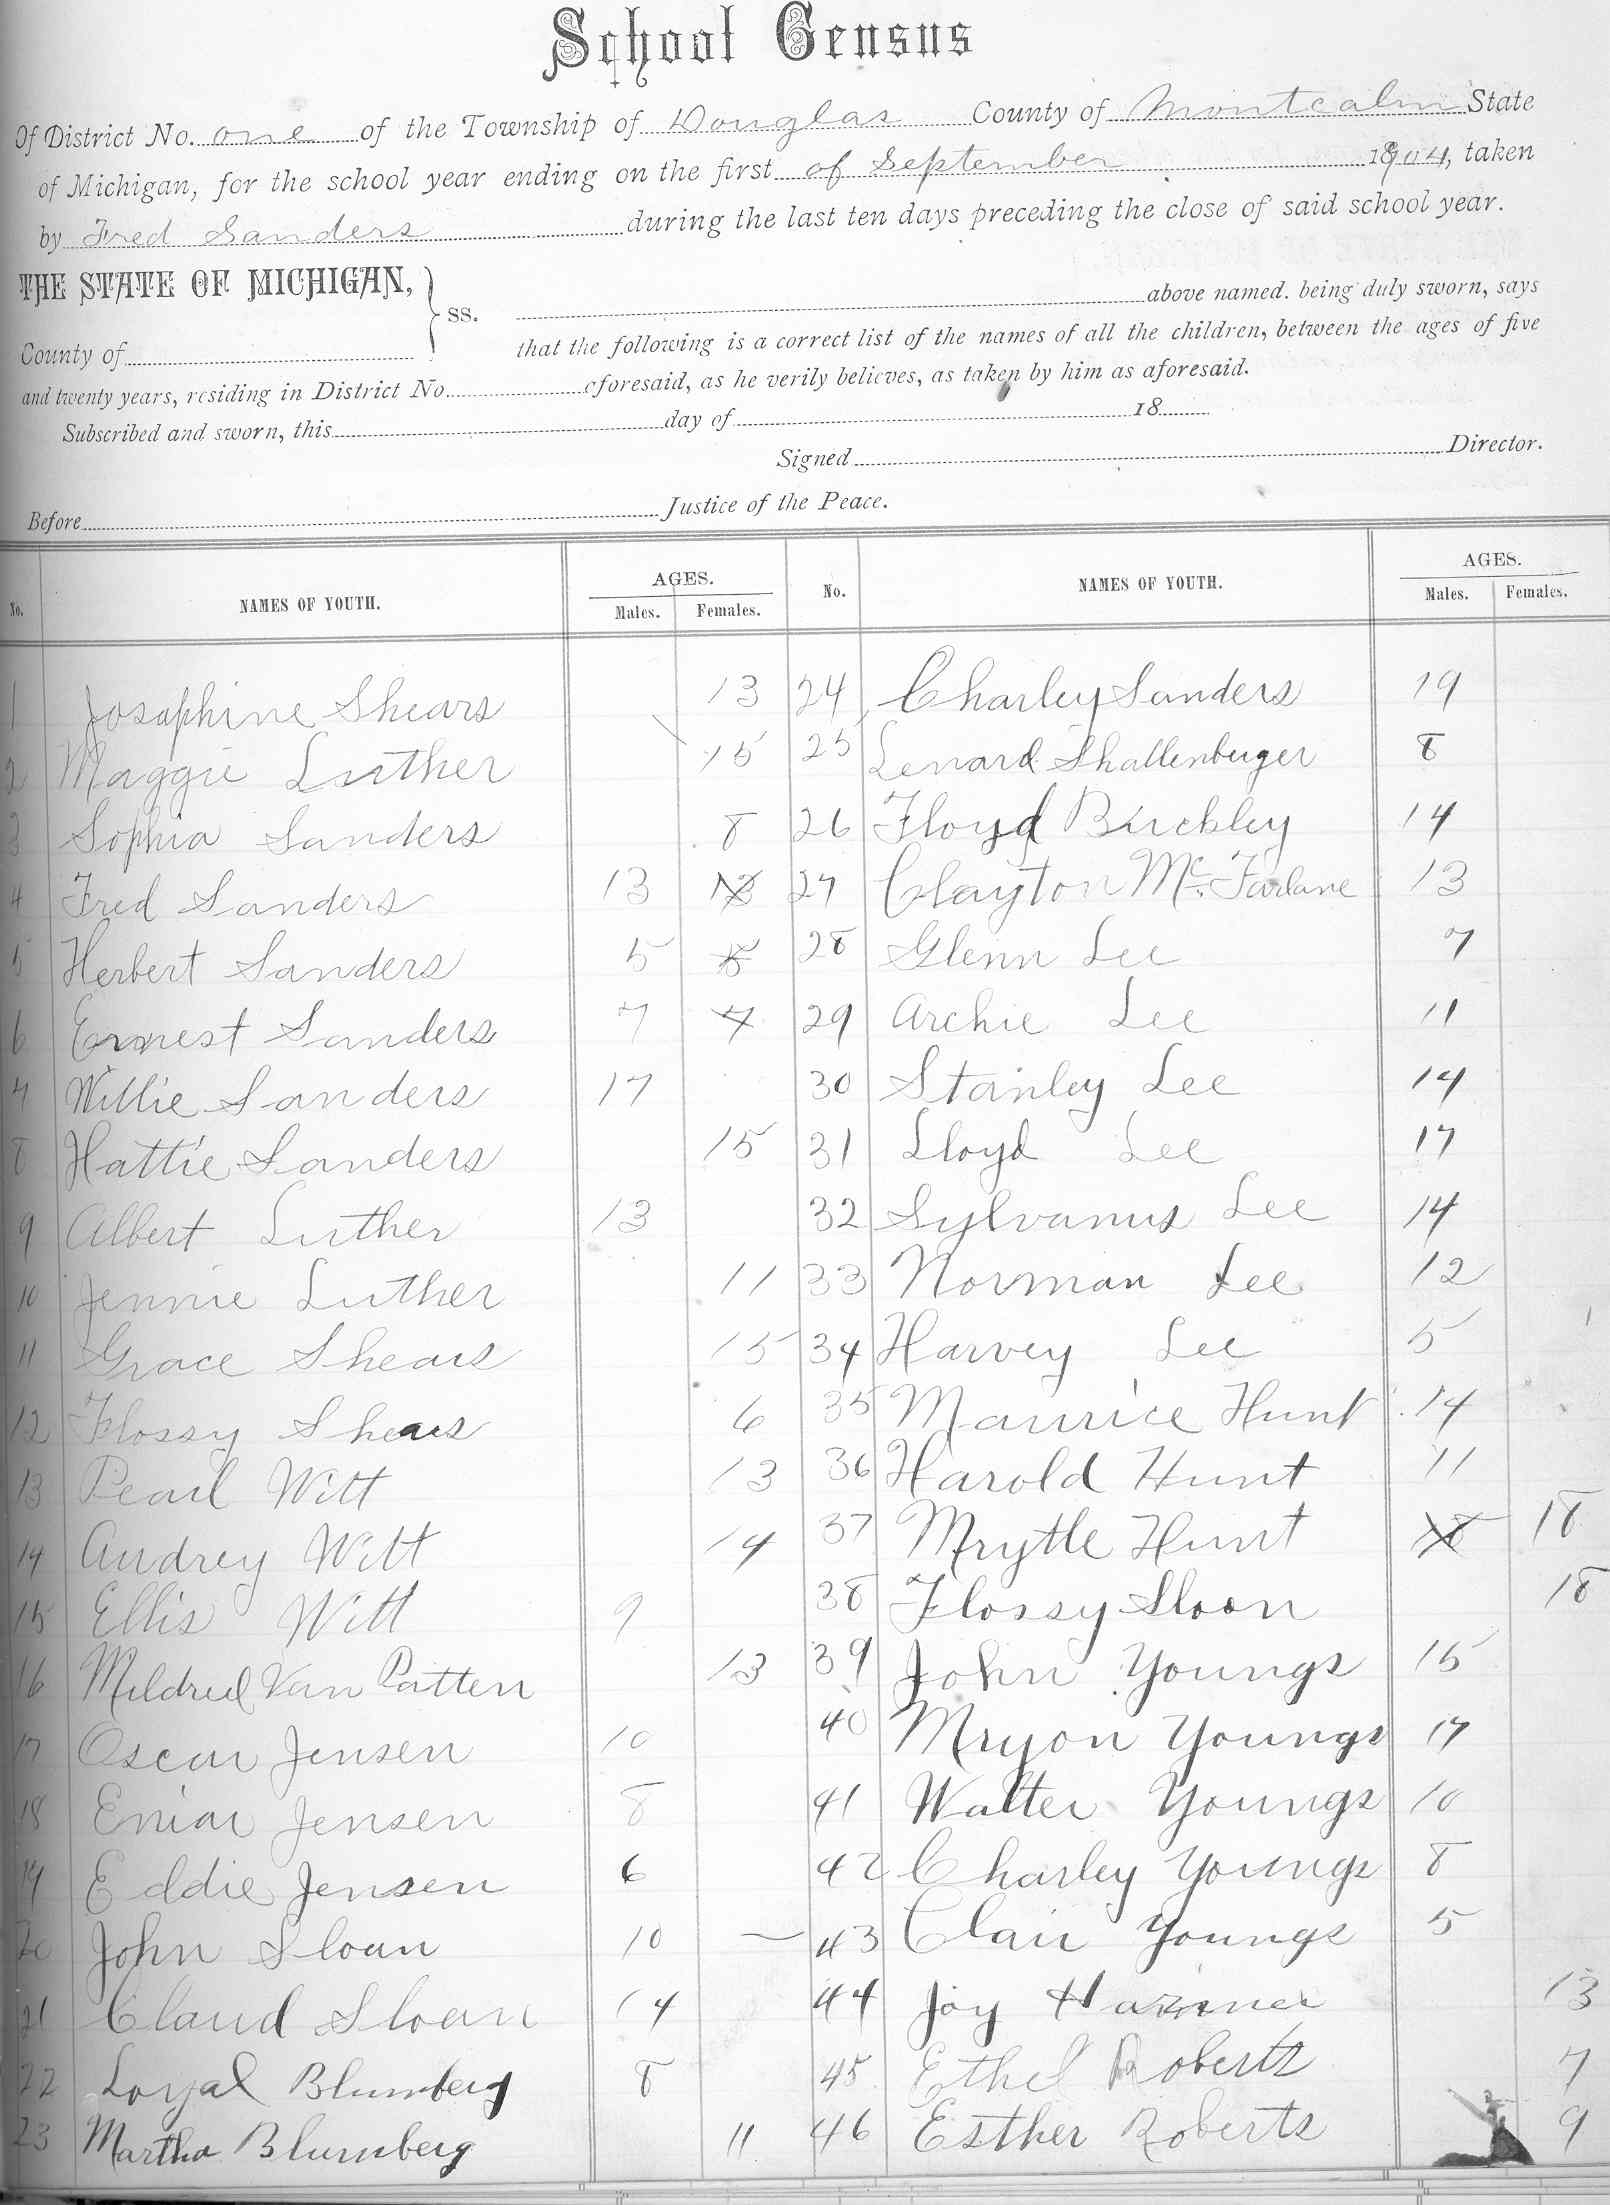 School Census
Of District No. one of the Township of Douglas County of Montcalm State
of Michigan, for the school year ending on the first of September 1904, taken
by Fred Sanders during the last ten days preceding the close of said school year.
THE STATE OF MICHIGAN, } ss. above named. being duly sworn, says
County of that the following is a correct list of the names of all the children, between the ages of five
and twenty years, residing in District No. aforesaid, as he verily believes, as taken by him as aforesaid.
Subscribed and sworn, this day of 18
Signed Director.
Before Justice of the Peace.
No. NAMES OF YOUTH. AGES. Males. Females. No. NAMES OF YOUTH. AGES. Males. Females.
1 Josaphine Shears 13 24 Charley Sanders 19
2 Maggie Luther 15 25 Lenard Shallenburger 8
3 Sophia Sanders 8 26 Floyd Birckley 14
4 Fred Sanders 13 13 27 Clayton Mc. Farlane 13
5 Herbert Sanders 5 5 28 Glenn Lee 7
6 Ernest Sanders 7 7 29 Archie Lee 11
7 Willie Sanders 17 30 Stanley Lee 14
8 Hattie Sanders 15 31 Lloyd Lee 17
9 Albert Luther 13 32 Sylvanus Lee 14
10 Jennie Luther 11 33 Norman Lee 12
11 Grace Shears 15 34 Harvey Lee 5
12 Flossy Shears 6 35 Maurice Hunt 14
13 Pearl Witt 13 36 Harold Hunt 11
14 Audrey Witt 14 37 Mrytle Hunt 18 18
15 Ellis Witt 9 38 Flossy Sloon 18
16 Mildred Van Patten 13 39 John Youngs 15
17 Oscar Jensen 10 40 Mryon Youngs 17
18 Eniar Jensen 8 41 Walter Youngs 10
19 Eddie Jensen 6 42 Charley Youngs 8
20 John Sloan 10 43 Clair Youngs 5
21 Claud Sloan 14 44 Joy 13
22 Loyal Blumberg 8 45 Ethel Roberts 7
23 Martha Blumberg 11 46 Esther Roberts 9